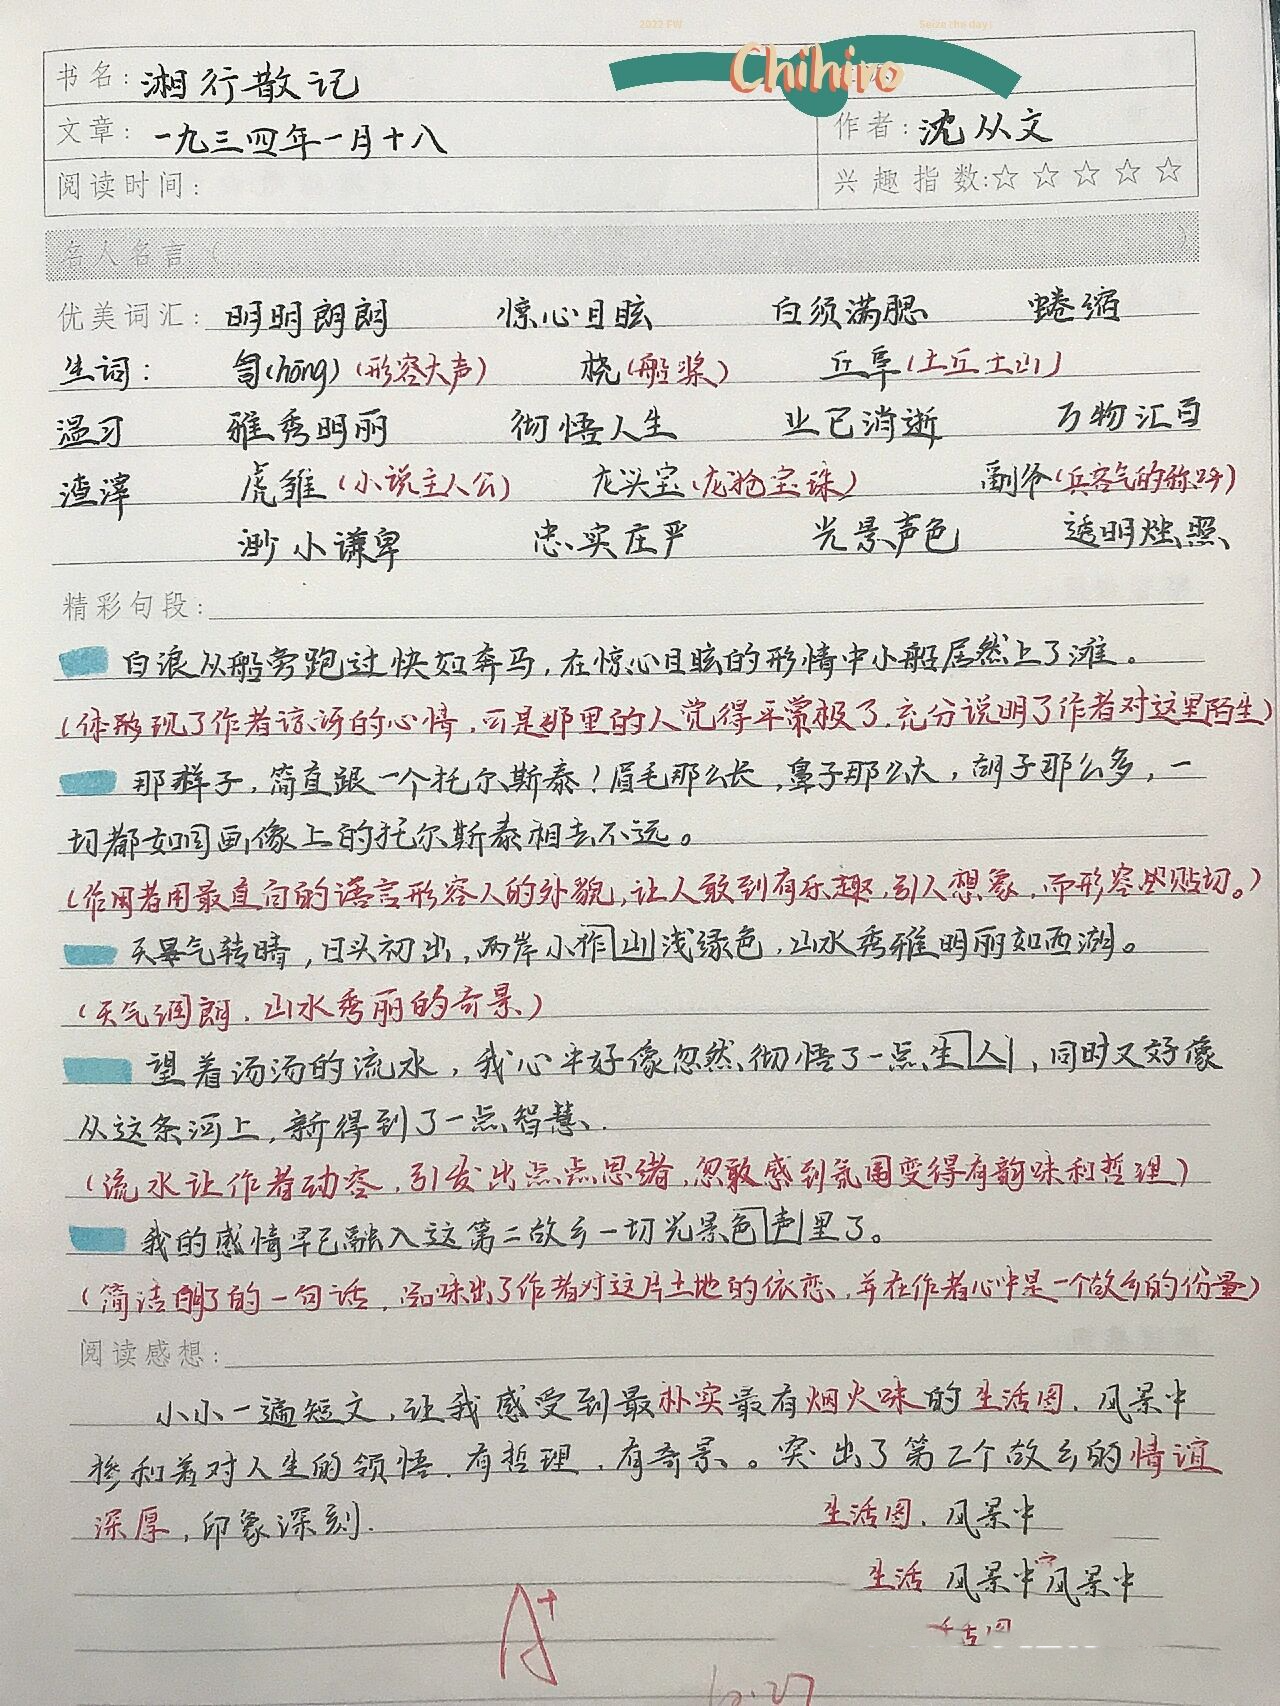 2022 FW
Seize the day!
Chihiro
书名: 湘行散记
文章: 一九三四年一月十八
作者: 沈从文
阅读时间:
兴趣指数:☆☆☆☆☆
名人名言 (                    )
优美词汇: 明明朗朗 惊心目眩 白须满腮 蜷缩
生词: 訇(hōng)(形容大声) 桡(船桨) 丘阜(土丘土山)
温习 雅秀明丽 彻悟人生 业已消逝 万物汇百
渣滓 虎雏(小说主人公) 龙头宝(龙抢宝珠) 副爷(兵客气的称呼)
渺小谦卑 忠实庄严 光景声色 透明烛照
精彩句段:
白浪从船旁跑过快如奔马,在惊心目眩的形情中小船居然上了滩。
(体现了作者惊讶的心情,可是那里的人觉得平常极了,充分说明了作者对这里陌生)
那样子,简直跟一个托尔斯泰!眉毛那么长,鼻子那么大,胡子那么多,一
切都如同画像上的托尔斯泰相去不远。
(作者用最直白的语言形容人的外貌,让人感到有乐趣,引人想象,而形容贴切。)
天气转晴,日头初出,两岸小作山浅绿色,山水秀雅明丽如西湖。
(天气润朗,山水秀丽的奇景)
望着汤汤的流水,我心中好像忽然彻悟了一点生人,同时又好像
从这条河上,新得到了一点智慧、
(流水让作者动容,引发出点点思绪,忽感到氛围变得有韵味和哲理)
我的感情早已融入这第二故乡一切光景色声里了。
(简洁明了的一句话,品味出了作者对这片土地的依恋、并在作者心中是一个故乡的份量)
阅读感想:
小小一遍短文,让我感受到最朴实最有烟火味的生活图,风景中
掺和着对人生的领悟、有哲理、有奇景。突出了第二个故乡的情谊
深厚,印象深刻.
生活图,风景中
生活 风景中 风景中
A+
12.27